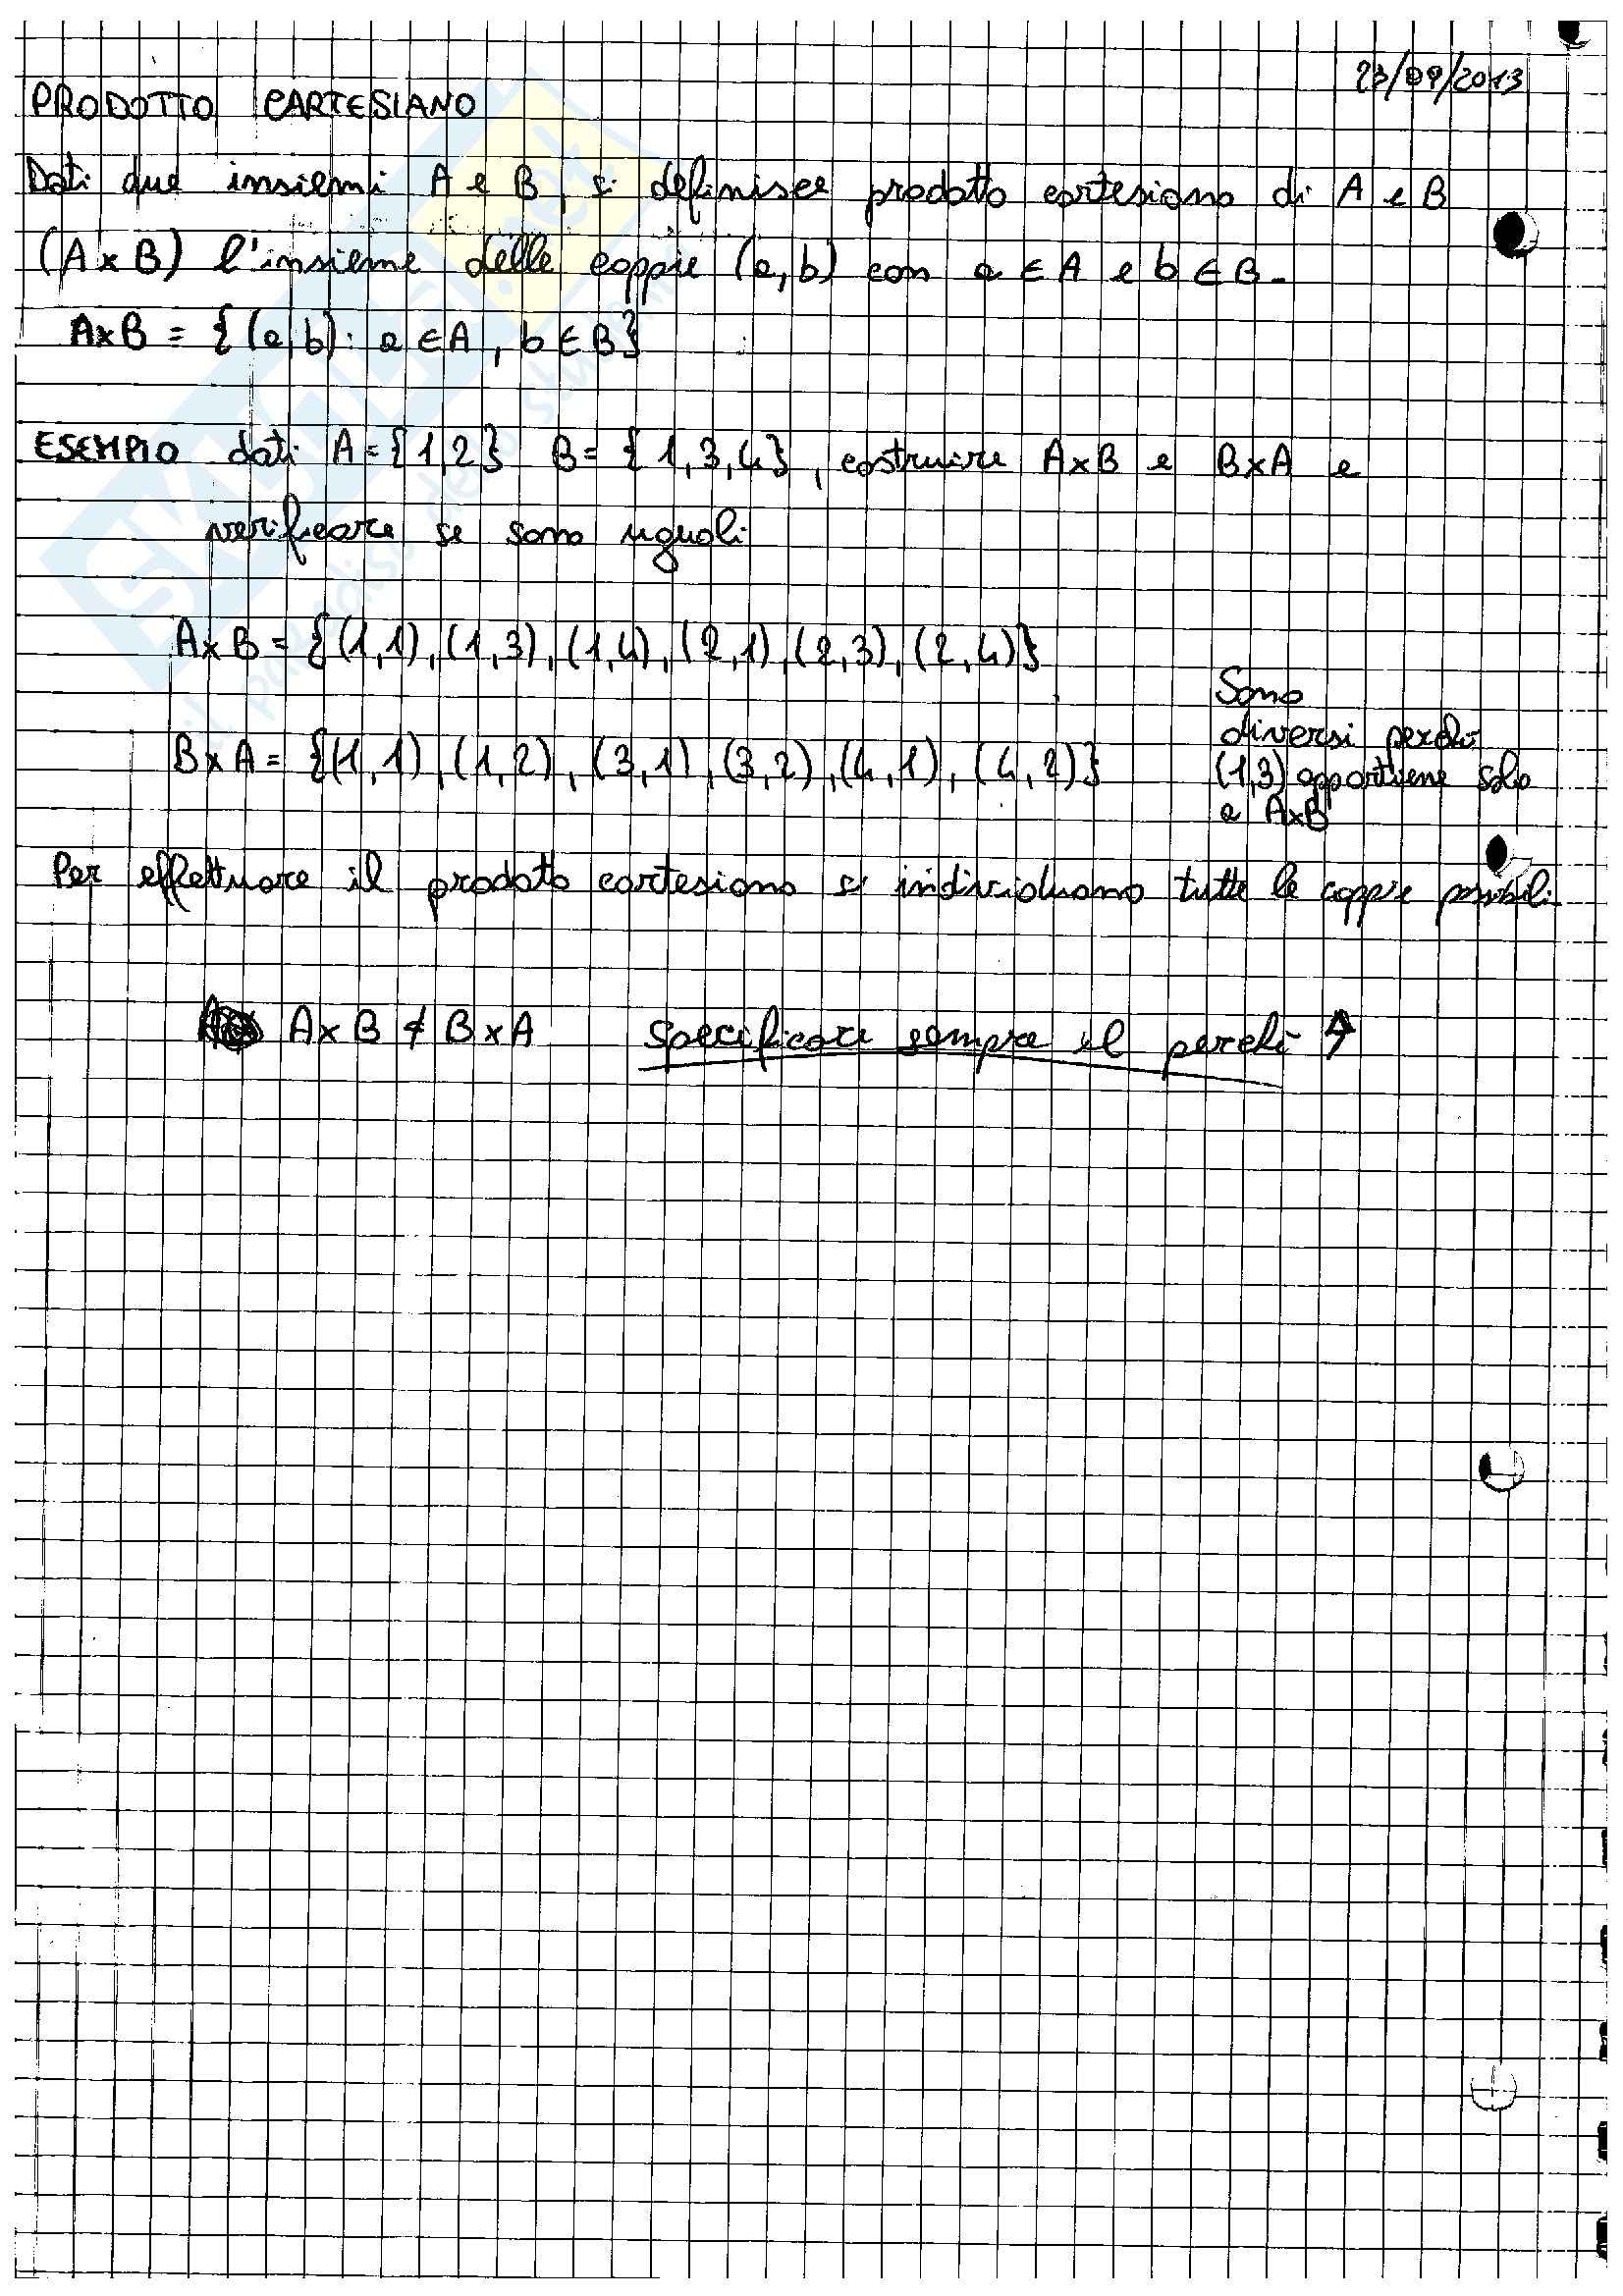 23/09/2013
PRODOTTO CARTESIANO
Dati due insiemi A e B, si definisce prodotto cartesiano di A e B
(A×B) l'insieme delle coppie (a,b) con a ∈ A e b ∈ B.
A×B = {(a,b): a ∈ A, b ∈ B}
ESEMPIO dati A={1,2} B={1,3,4}, costruire A×B e B×A e
verificare se sono uguali
A×B = {(1,1), (1,3), (1,4), (2,1), (2,3), (2,4)}
B×A = {(1,1), (1,2), (3,1), (3,2), (4,1), (4,2)}
Sono
diversi perché
(1,3) appartiene solo
a A×B
Per effettuare il prodotto cartesiano si individuano tutte le coppie possibili
A×B ≠ B×A specificare sempre il perché ↑
SKUOLA.net
il paradiso dello studente